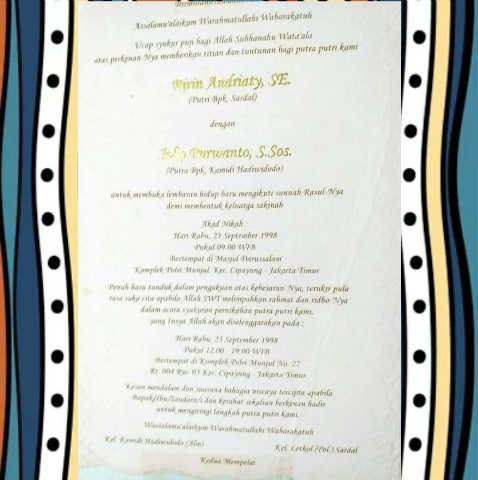 Assalamu'alaikum Warahmatullahi Wabarakatuh
Ucap syukur puji bagi Allah Subhanahu Wata'ala
atas perkenan Nya memberikan titian dan tuntunan bagi putra putri kami
Andriaty, SE.
(Putri Bpk. Sardal)
dengan
Purwanto, S.Sos.
(Putra Bpk. Kamidi Hadiwidodo)
untuk membuka lembaran hidup baru mengikuti sunnah Rasul-Nya
demi membentuk keluarga sakinah
Akad Nikah :
Hari Rabu, 23 September 1998
Pukul 09.00 WIB
Bertempat di Masjid Darussalam
Komplek Polri Munjul, Kec. Cipayung - Jakarta Timur
Penuh haru tunduk dalam pengakuan atas kebesaran Nya, terukir pula
rasa suka cita apabila Allah SWT melimpahkan rahmat dan ridho Nya
dalam acara syukuran pernikahan putra putri kami,
yang Insya Allah akan diselenggarakan pada :
Hari Rabu, 23 September 1998
Pukul 12.00 - 19.00 WIB
Bertempat di Komplek Polri Munjul No. 27
Rt. 004 Rw. 03 Kec. Cipayung - Jakarta Timur
Kesan mendalam dan suasana bahagia niscaya tercipta apabila
Bapak/Ibu/Saudara/i dan kerabat sekalian berkenan hadir
untuk mengiringi langkah putra putri kami.
Wassalamu'alaikum Warahmatullahi Wabarakatuh
Kel. Kamidi (Alm)
Kel. Letkol (Pol.) Sardal
Kedua Mempelai